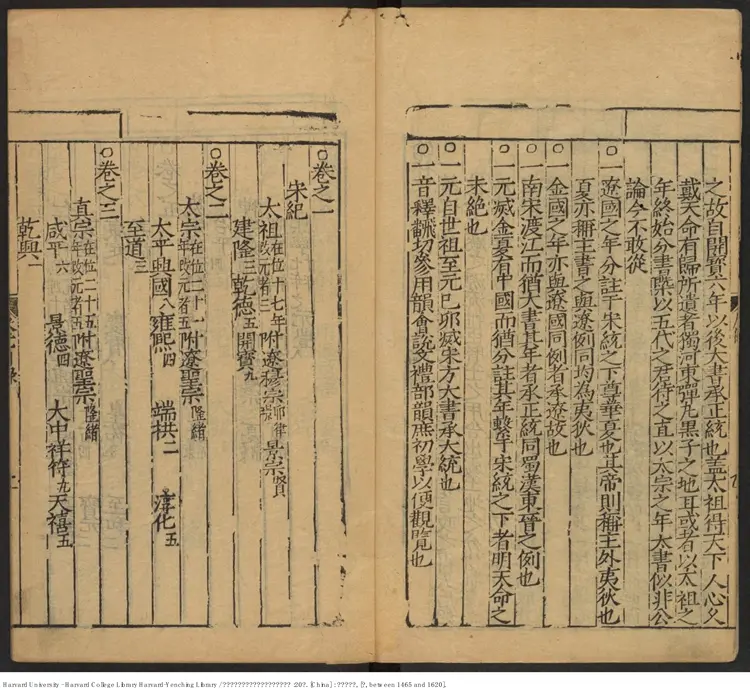 之故自開寶六年以後大書承正統也蓋太祖得天下人心久
戴天命有歸所遺者獨河東彈丸黑子之地耳或者以太祖之
年終始分書槩以五代之君待之直以太宗之年大書似非公
論今不敢從
○一遼國之年分註于宋統之下尊華夏也其帝則稱主外夷狄也
夏亦稱主書之與遼例同均為夷狄也
○一金國之年亦與遼國同例者承遼故也
○一南宋渡江而猶大書其年者承正統同蜀漢東晉之例也
○一元滅金夏有中國而猶分註其年繫于宋統之下者明天命之
未絶也
○一元自世祖至元己卯滅宋方大書承大統也
○一音釋翻切參用韻會說文禮部韻庶初學以便觀覧也
○卷之一
宋紀
太祖在位十七年改元者三 附遼穆宗耶律璟 景宗賢
建隆三 乾德五 開寶九
○卷之二
太宗在位二十一年改元者五 附遼聖宗隆緒
太平興國八 雍熈四 端拱二 淳化五
至道三
○卷之三
真宗在位二十五年改元者五 附遼聖宗隆緒
咸平六 景德四 大中祥符九 天禧五
乾興一
Harvard University - Harvard College Library Harvard-Yenching Library / ?????????????????? :20?. [China] : ?????, [?, between 1465 and 1620].